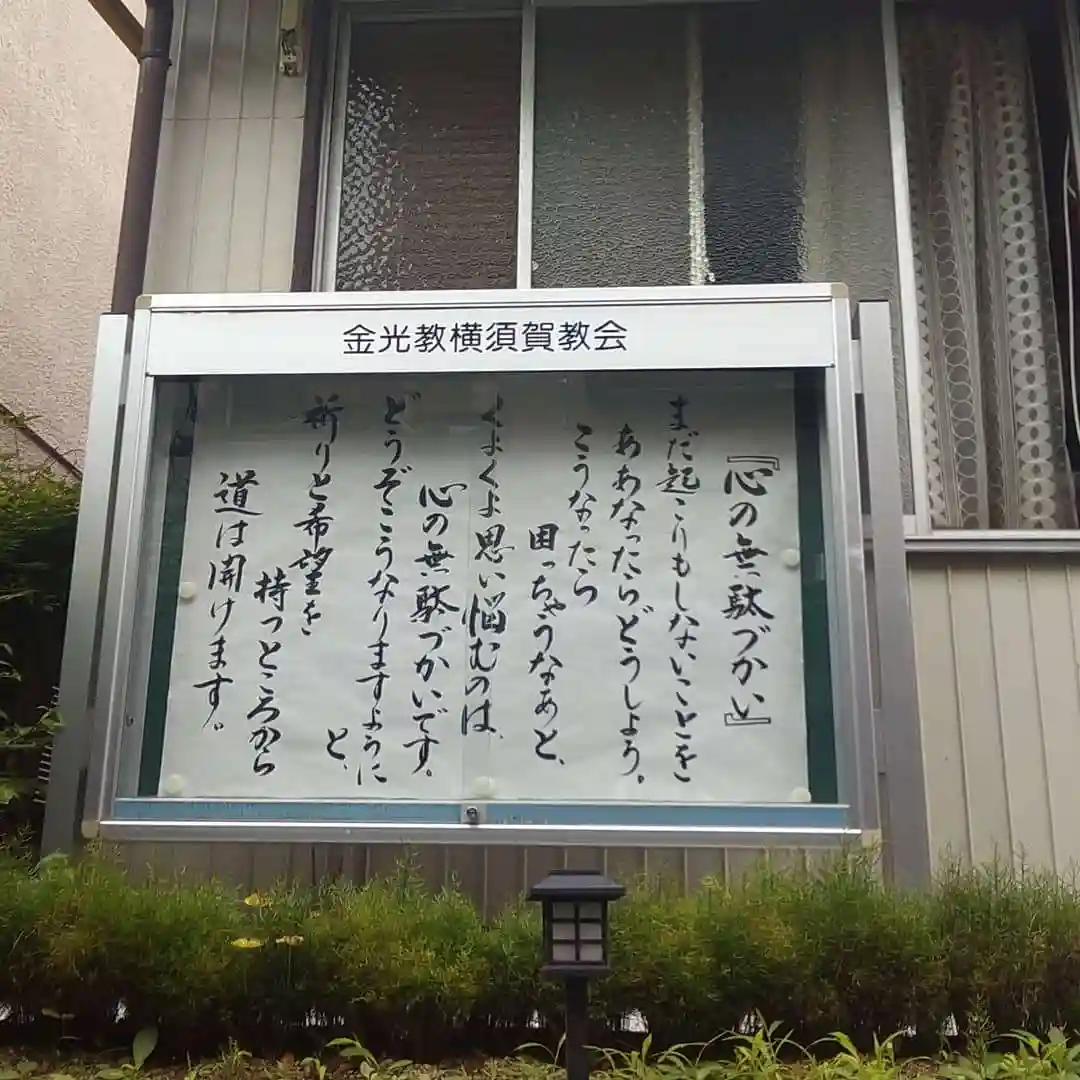 金光教横須賀教会
『心の無駄づかい』
まだ起こりもしないことを
ああなったらどうしよう。
こうなったら
困っちゃうなあと、
くよくよ思い悩むのは、
心の無駄づかいです。
どうぞこうなりますように
と、
祈りと希望を
持つところから
道は開けます。